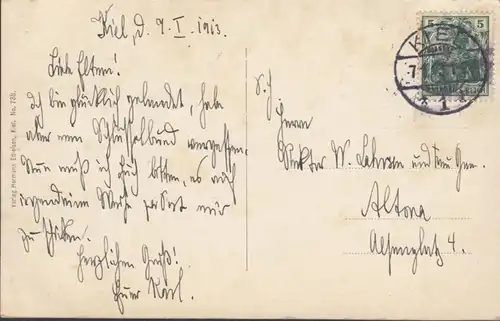 Kiel, d. 7. I. 1913.
Liebe Eltern!
Ich bin glücklich gelandet, habe
aber mein Schlüsselbund vergessen.
Nun muß ich Euch bitten, es auf
irgendeine Weise per Post mir
zu schicken.
Herzlichen Gruß!
Euer Karl.
Herrn
W. und Frau Gem.
Altona
Alsenplatz 4.
5 5
KIEL
1
Verlag Hermann Kiel. No.